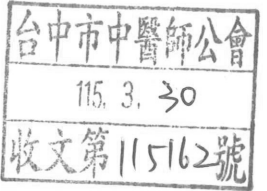 台中市中醫師公會
115. 3. 30
收文第115162號